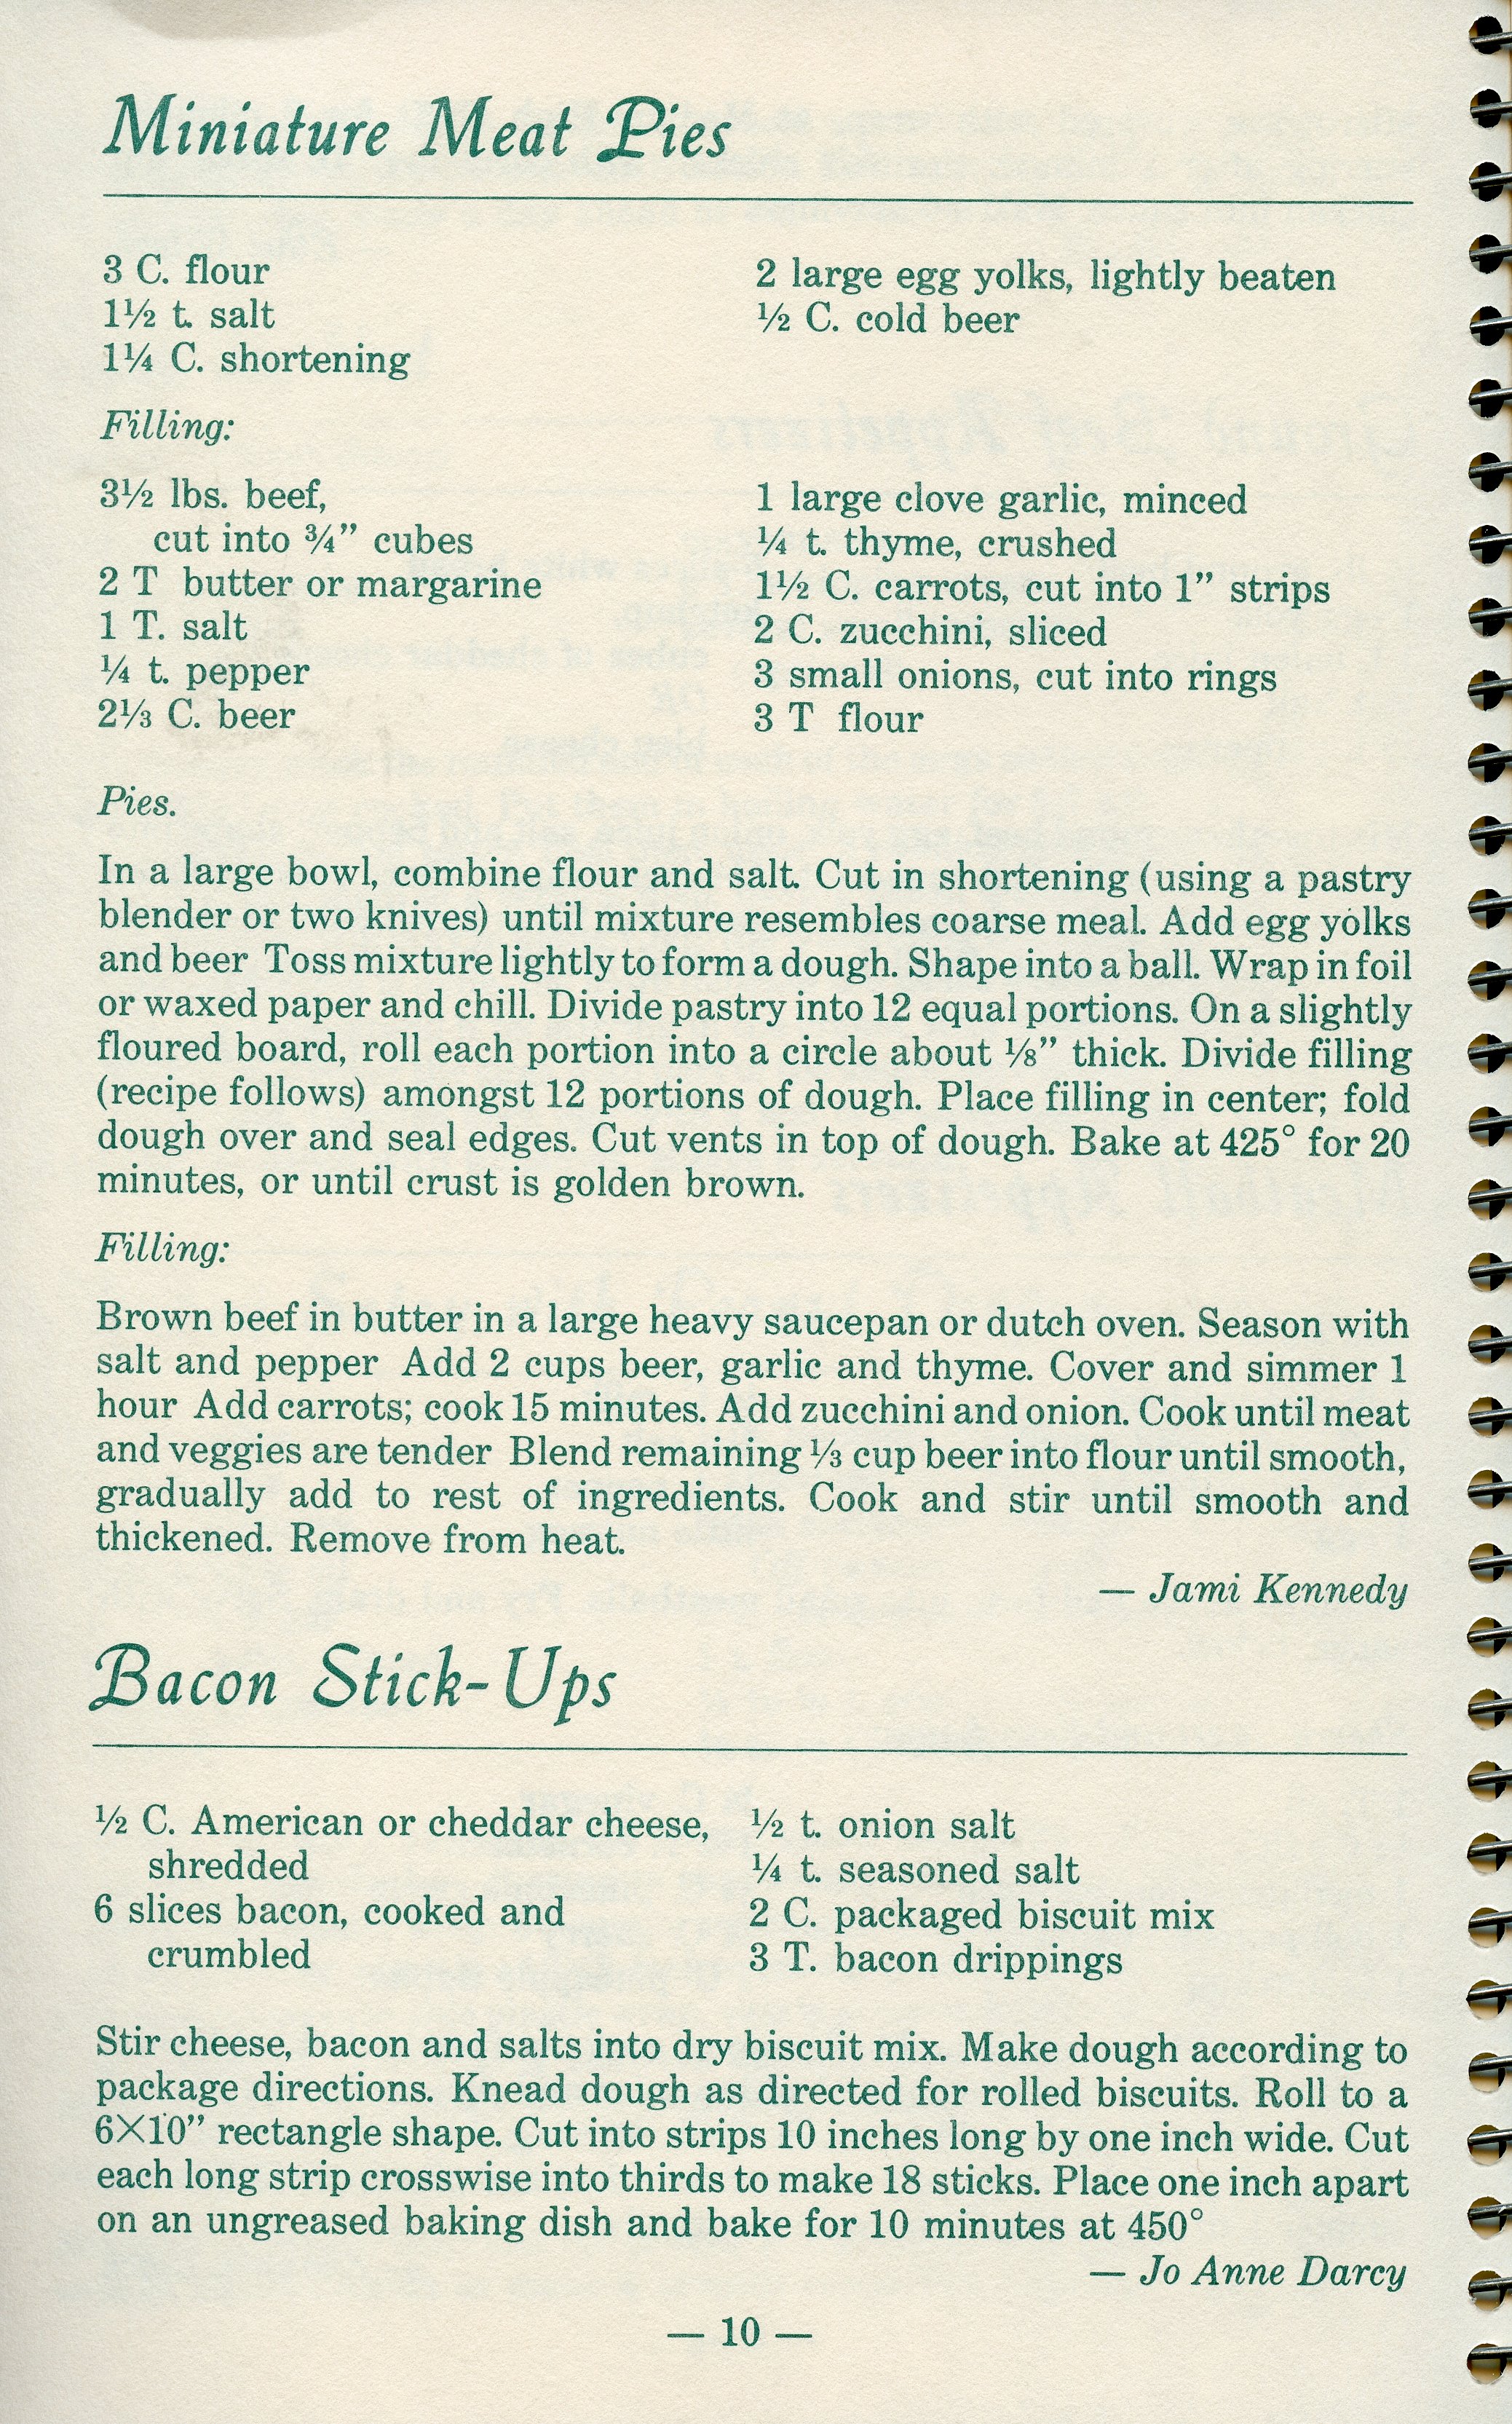 Miniature Meat Pies
3 C. flour
1½ t. salt
1¼ C. shortening
2 large egg yolks, lightly beaten
½ C. cold beer
Filling:
3½ lbs. beef,
cut into ¾” cubes
2 T butter or margarine
1 T. salt
¼ t. pepper
2⅓ C. beer
1 large clove garlic, minced
¼ t. thyme, crushed
1½ C. carrots, cut into 1” strips
2 C. zucchini, sliced
3 small onions, cut into rings
3 T flour
Pies.
In a large bowl, combine flour and salt. Cut in shortening (using a pastry
blender or two knives) until mixture resembles coarse meal. Add egg yolks
and beer Toss mixture lightly to form a dough. Shape into a ball. Wrap in foil
or waxed paper and chill. Divide pastry into 12 equal portions. On a slightly
floured board, roll each portion into a circle about ⅛” thick. Divide filling
(recipe follows) amongst 12 portions of dough. Place filling in center; fold
dough over and seal edges. Cut vents in top of dough. Bake at 425° for 20
minutes, or until crust is golden brown.
Filling:
Brown beef in butter in a large heavy saucepan or dutch oven. Season with
salt and pepper Add 2 cups beer, garlic and thyme. Cover and simmer 1
hour Add carrots; cook 15 minutes. Add zucchini and onion. Cook until meat
and veggies are tender Blend remaining ⅓ cup beer into flour until smooth,
gradually add to rest of ingredients. Cook and stir until smooth and
thickened. Remove from heat.
— Jami Kennedy
Bacon Stick-Ups
½ C. American or cheddar cheese,
shredded
6 slices bacon, cooked and
crumbled
½ t. onion salt
¼ t. seasoned salt
2 C. packaged biscuit mix
3 T. bacon drippings
Stir cheese, bacon and salts into dry biscuit mix. Make dough according to
package directions. Knead dough as directed for rolled biscuits. Roll to a
6×10” rectangle shape. Cut into strips 10 inches long by one inch wide. Cut
each long strip crosswise into thirds to make 18 sticks. Place one inch apart
on an ungreased baking dish and bake for 10 minutes at 450°
— Jo Anne Darcy
— 10 —